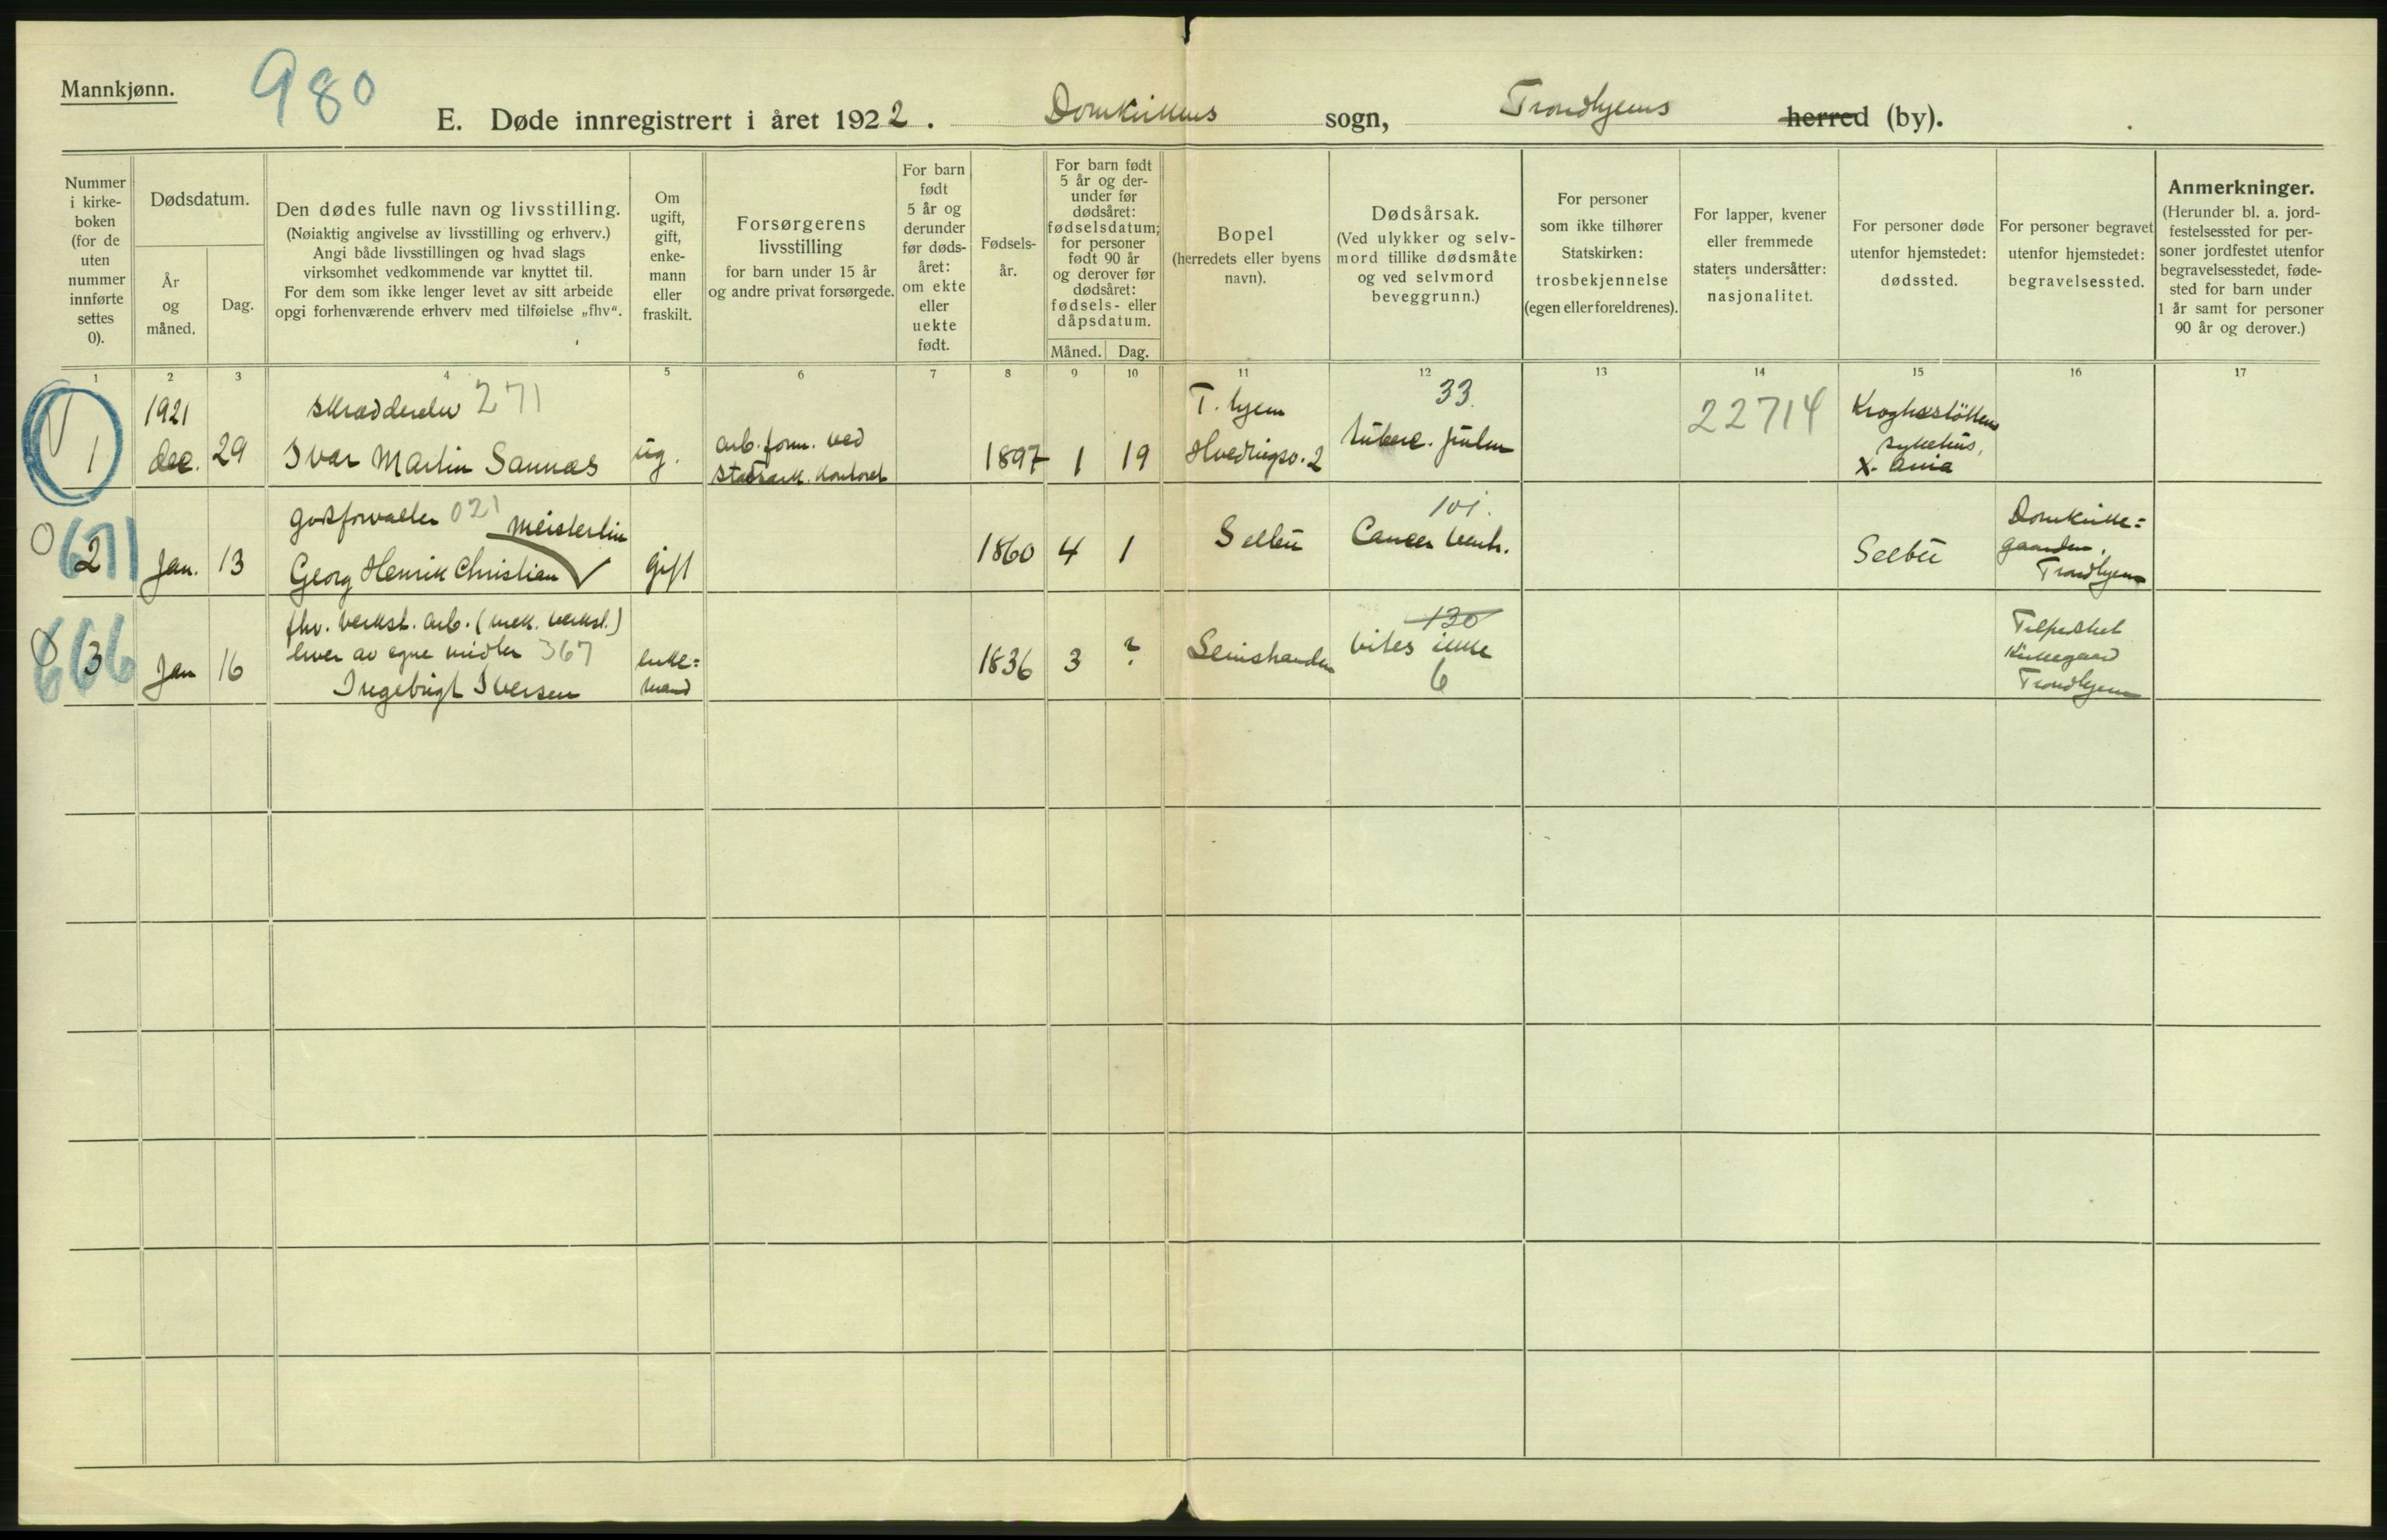 Mannkjønn.
980
E. Døde innregistrert i året 1922. Domkirkens sogn, Trondhjems herred (by).
Nummer
i kirke-
boken
(for de
uten
nummer
innførte
settes
0).
Dødsdatum.
År
og
måned.
Dag.
Den dødes fulle navn og livsstilling.
(Nøiaktig angivelse av livsstilling og erhverv.)
Angi både livsstillingen og hvad slags
virksomhet vedkommende var knyttet til.
For dem som ikke lenger levet av sitt arbeide
opgi forhenværende erhverv med tilføielse „fhv“.
Om
ugift,
gift,
enke-
mann
eller
fraskilt.
Forsørgerens
livsstilling
for barn under 15 år
og andre privat forsørgede.
For barn
født
5 år og
derunder
før døds-
året:
om ekte
eller
uekte
født.
Fødsels-
år.
For barn født
5 år og der-
under før
dødsåret:
fødselsdatum;
for personer
født 90 år
og derover før
dødsåret:
fødsels- eller
dåpsdatum.
Måned. Dag.
Bopel
(herredets eller byens
navn).
Dødsårsak.
(Ved ulykker og selv-
mord tillike dødsmåte
og ved selvmord
beveggrunn.)
For personer
som ikke tilhører
Statskirken:
trosbekjennelse
(egen eller foreldrenes).
For lapper, kvener
eller fremmede
staters undersåtter:
nasjonalitet.
For personer døde
utenfor hjemstedet:
dødssted.
For personer begravet
utenfor hjemstedet:
begravelsessted.
Anmerkninger.
(Herunder bl. a. jord-
festelsessted for per-
soner jordfestet utenfor
begravelsesstedet, føde-
sted for barn under
1 år samt for personer
90 år og derover.)
1 2 3 4 5 6 7 8 9 10 11 12 13 14 15 16 17
1
1921
dec.
29
skrædderelev 271
Ivar Martin Sannæs
ug.
arb. form. ved
1897
1
19
T. hjem
33
tuberc. pulm
22714
sykehus,
X. ania
0
671
2
Jan.
13
godsforvalter 021 Meisterlin
Georg Henrik Christian
gift
1860
4
1
Selbu
101.
Cancer ventr.
Selbu
Domkirke=
gaarden,
Trondhjem
0
666
3
Jan
16
fhv. verkst. arb. (mek. verkst.)
lever av egne midler 367
Ingebrigt Iversen
enke=
mand
1836
3
?
Leinstranden
130
vites ikke
6
Tilfredshet
Kirkegaard
Trondhjem